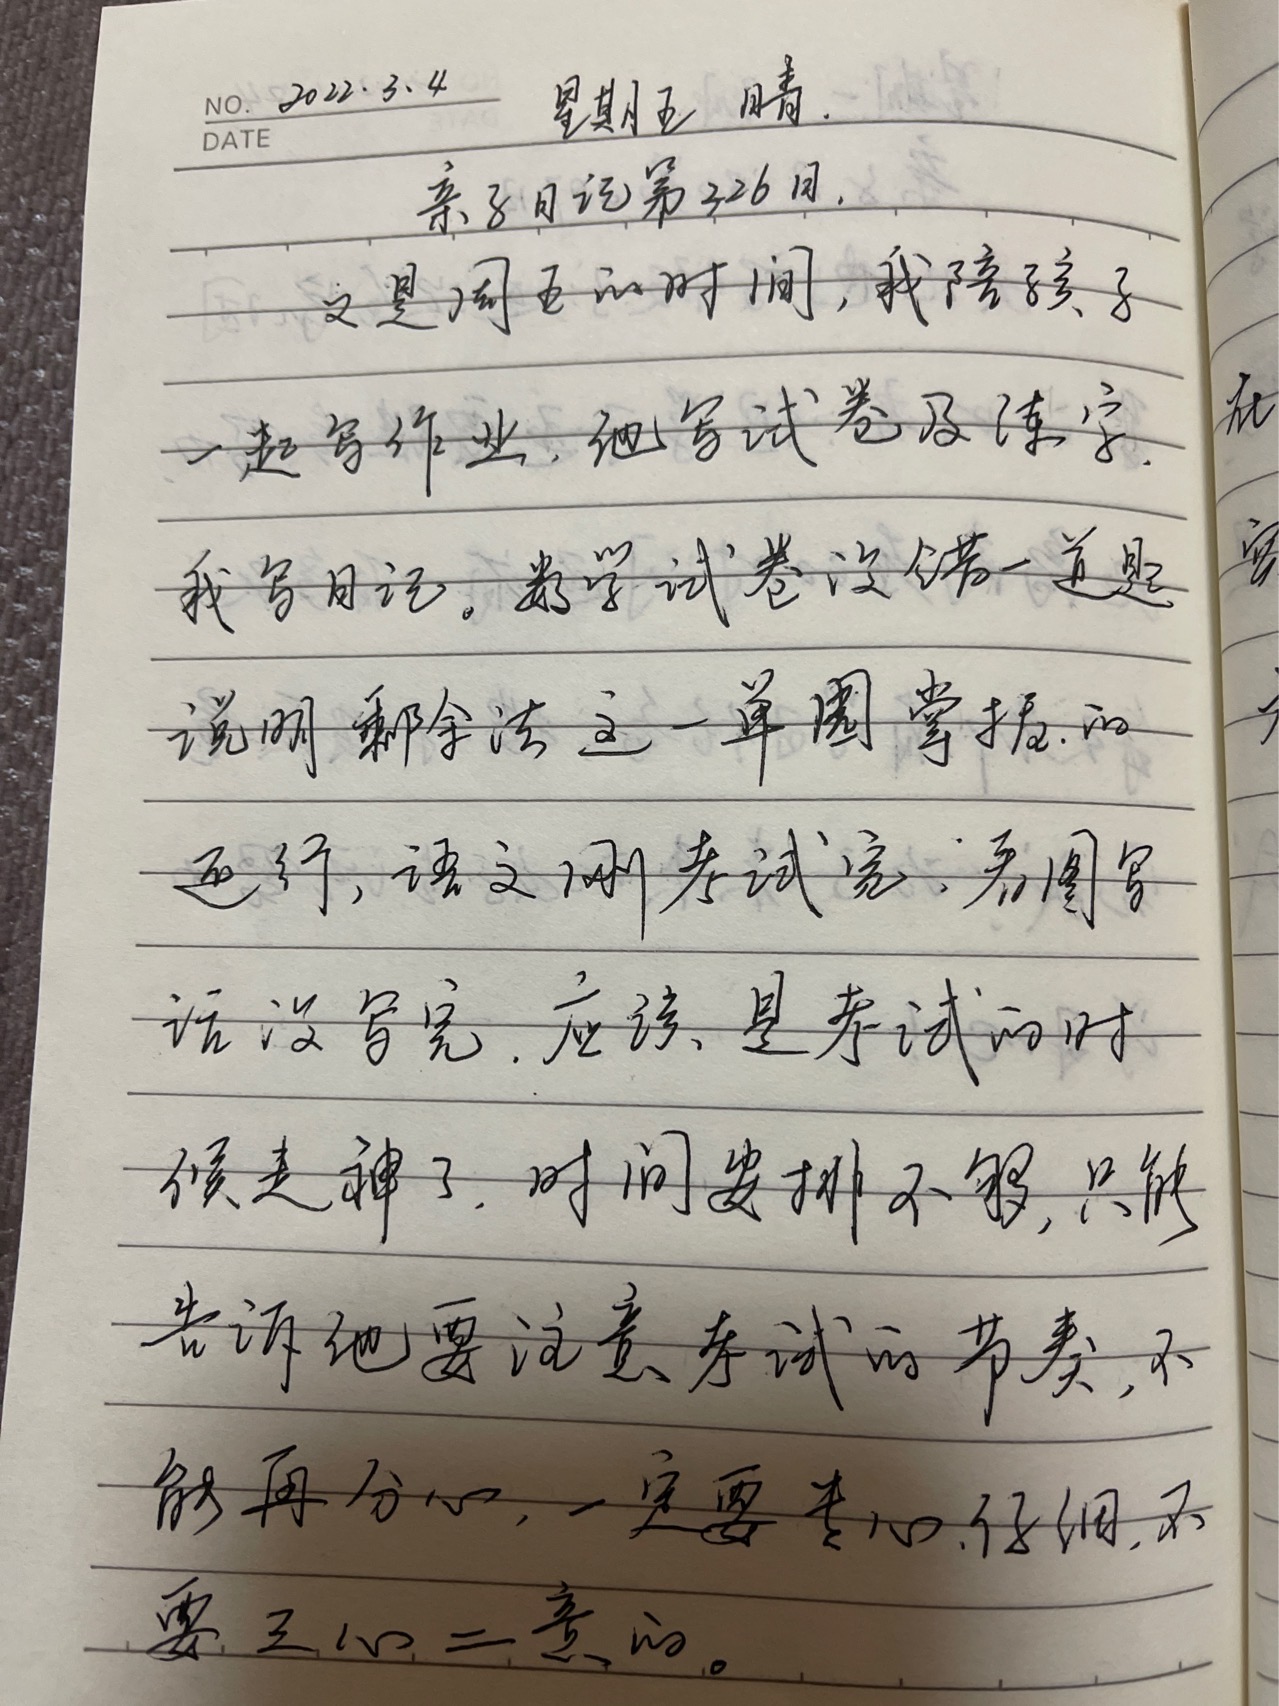 NO. 2022.3.4 星期五 晴.
DATE
亲子日记第326日.
又是周五的时间,我陪孩子
一起写作业,他写试卷及练字.
我写日记。数学试卷没错一道题
说明剩余法这一单圆掌握的
还行,语文测考试完,看图写
话没写完.应该是考试的时
候走神了.时间安排不够,只能
告诉他要注意考试的节奏,不
能再分心,一定要专心.仔细.不
要三心二意的。